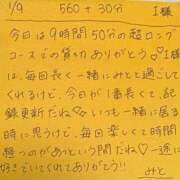 1/9 560+30分 I様
今日は9時間50分の超ロング
コースでの貸切ありがとう♡I様
は、毎回長く一緒にみとと過ごして
くれるけど、今日が1番長くて、記
録更新だね♡♡いつも一緒に居る
時に思うけど、毎回楽しくて時間
経つのがあっという間だね♡一途に
好きでいてくれてありがとう!!
みと